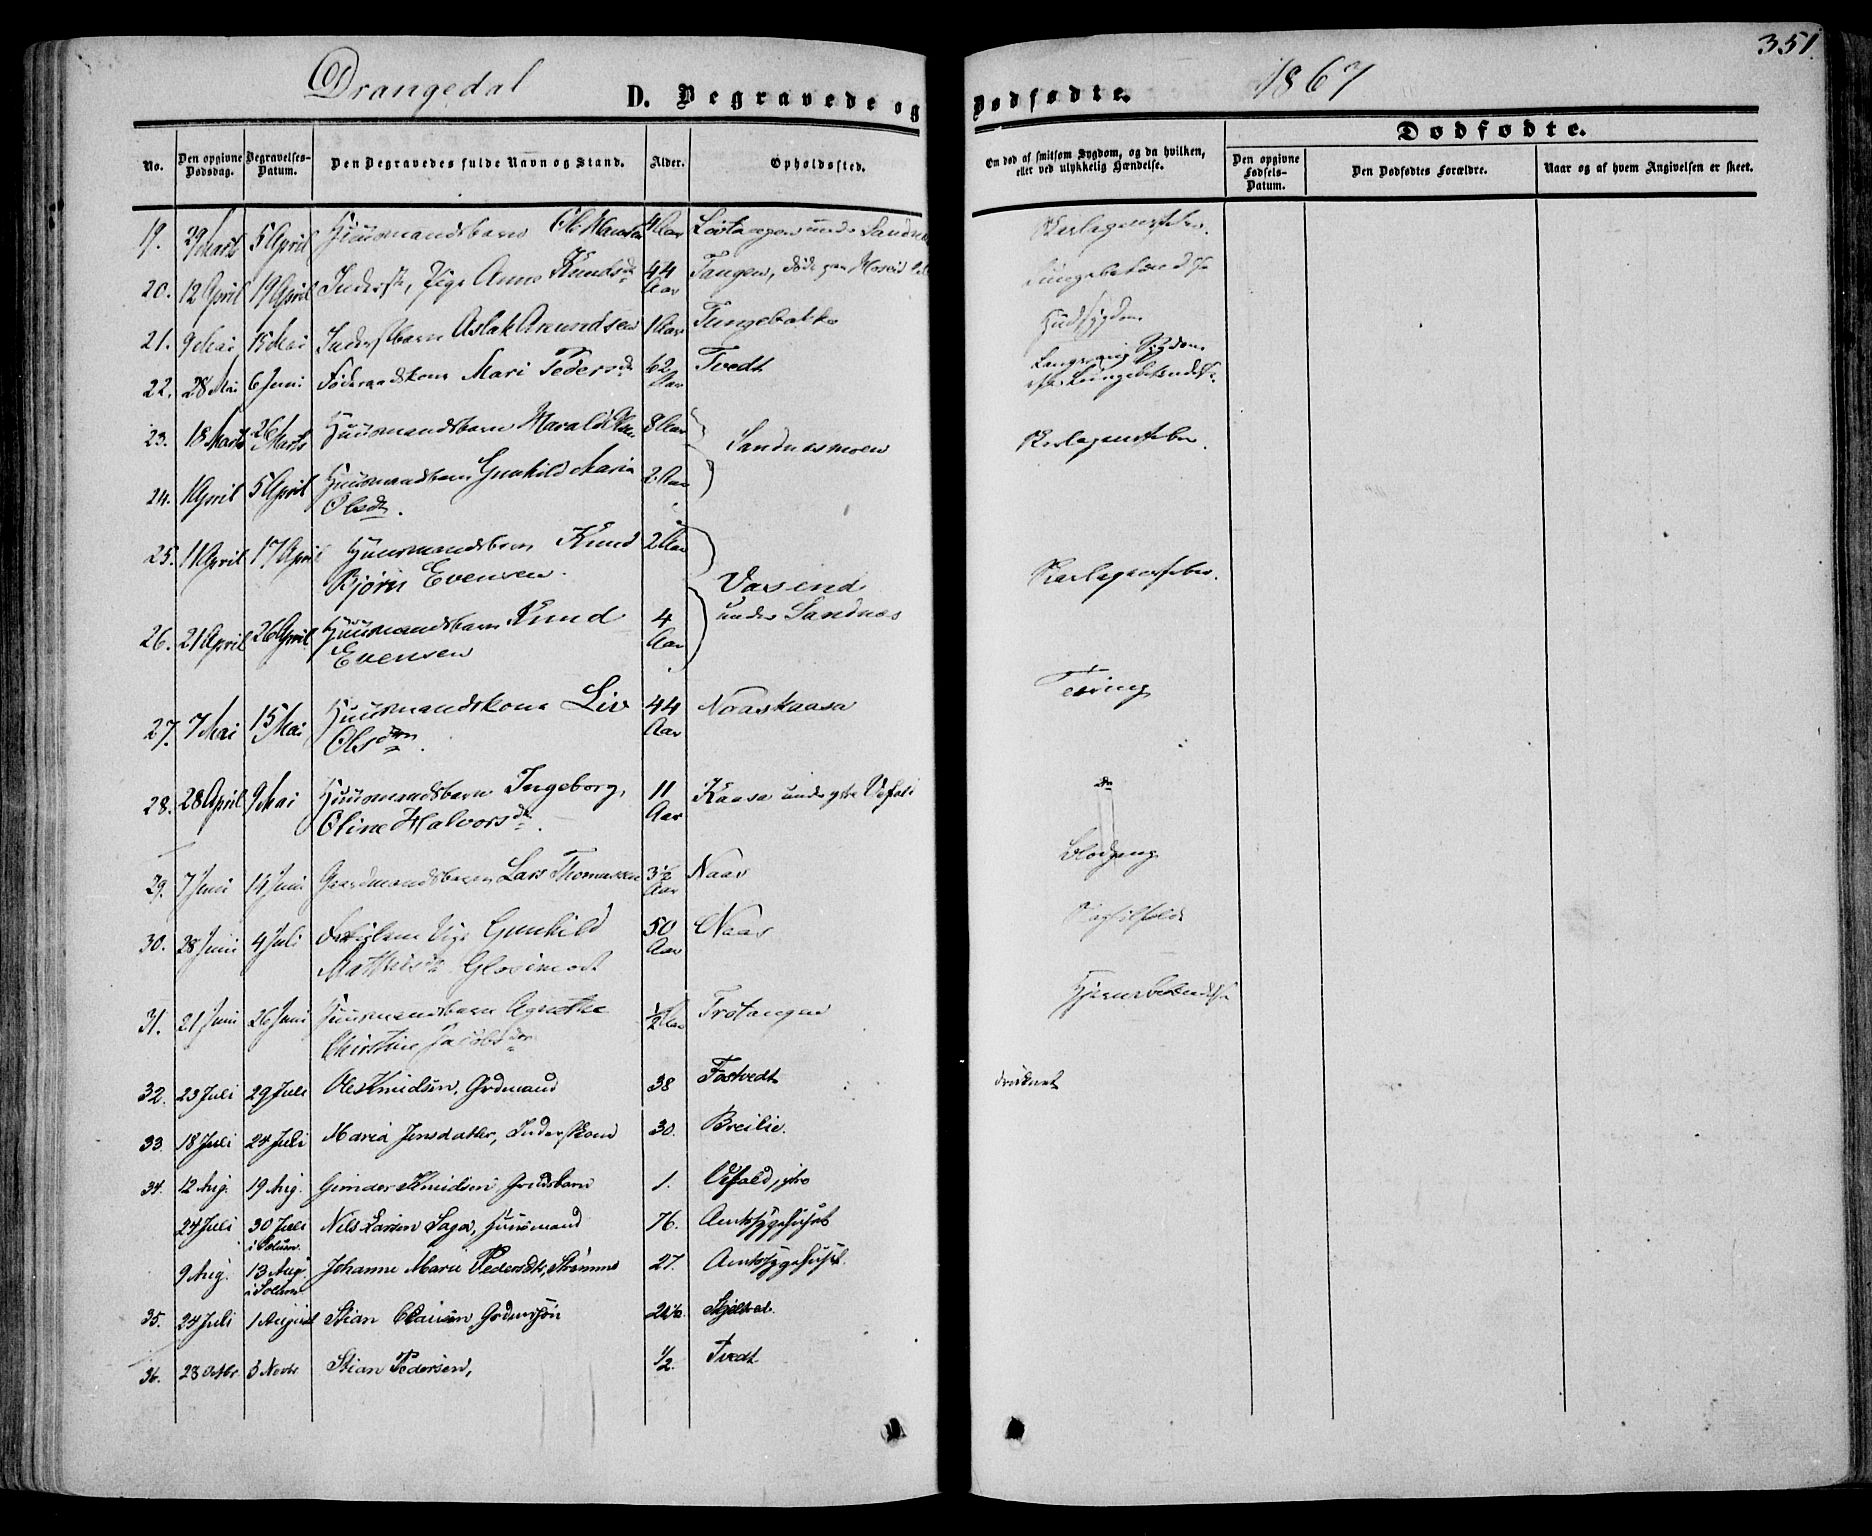 351.
Drangedal
D. Begravede og Dødfødte.
1867
Dødfødte.
No.
Den opgivne Dødsdag.
Begravelses-Datum.
Den Begravedes fulde Navn og Stand.
Alder.
Opholdssted.
En død af smitsom Sygdom, og da hvilken, eller ved ulykkelig Hændelse.
Den opgivne Fødsels-Datum.
Den Dødfødtes Forældre.
Naar og af hvem Angivelsen er skeet.
19. 29 Marts 5 April Huusmandsbarn Ole Hansen 4 Aar under Sandnes Skarlagensfeber.
20. 12 April 19 April Inderst, Pige Anne Knudsd 44 Aar Tangen, Lungebetændelse
21. 9 Mai 15 Mai Inderstbarn Aslak Amundsen 1 Aar Tungebakke Hudsygdom
22. 28 Mai 6 Juni Føderaadskone Mari Pedersd 62 Aar Tvedt Langvarig Sygdom
efter Lungebetændelse.
23. 18 Marts 26 Marts Huusmandsbarn 8 Aar Sandnesmoen Skarlagensfeber.
24. 1 April 5 April Huusmandsbarn Gunhild Maria 2 Aar
Olsdt.
25. 11 April 17 April Huusmandsbarn Knud 2 Aar
Bjørn Evensen. Vasend Skarlagensfeber.
26. 21 April 26 April Huusmandsbarn Knud 4 Aar under Sandnes
Evensen
27. 7 Mai 15 Mai Huusmandskone Liv 44 Aar Naaskaasa Tæring
Olsdtr.
28. 28 April 9 Mai Huusmandsbarn Ingeborg, 11 Aar Kaasa under ytre Vefald do
Oline Halvorsdt.
29. 7 Juni 14 Juni Gaardmandsbarn Lars Thomassen 3½ Aar Naas Blodgang
30. 28 Juni 4 Juli Pige Gunhild 50 Aar Naas
Mathisdt
31. 21 Juni 26 Juni Huusmandsbarn Agnethe ½ Aar Trøtangen Hjernebetændelse
Christine Jacobsdtr
32. 23 Juli 29 Juli Ole Knudsen, Grdmand 38 Fostvedt druknet
33. 18 Juli 24 Juli Maria Jensdatter, Inderstkone 30. Breilie.
34. 12 Aug. 19 Aug. Gunder Knudsen Grdsbarn 1. Vefald, ytre
24 Juli 30 Juli Nils Larsen Saga, Huusmand 76. Amtssygehuset
i Solum.
9 Aug. 13 Aug. Johanne Marie Pedersdt, Strømme 27. Amtssygehuset.
i Solum
35. 24 Juli 1 August Stian Clausen Grdmssøn
36. 28 Octbr. 3 Novbr Stian Pedersen, ½. Tvedt.